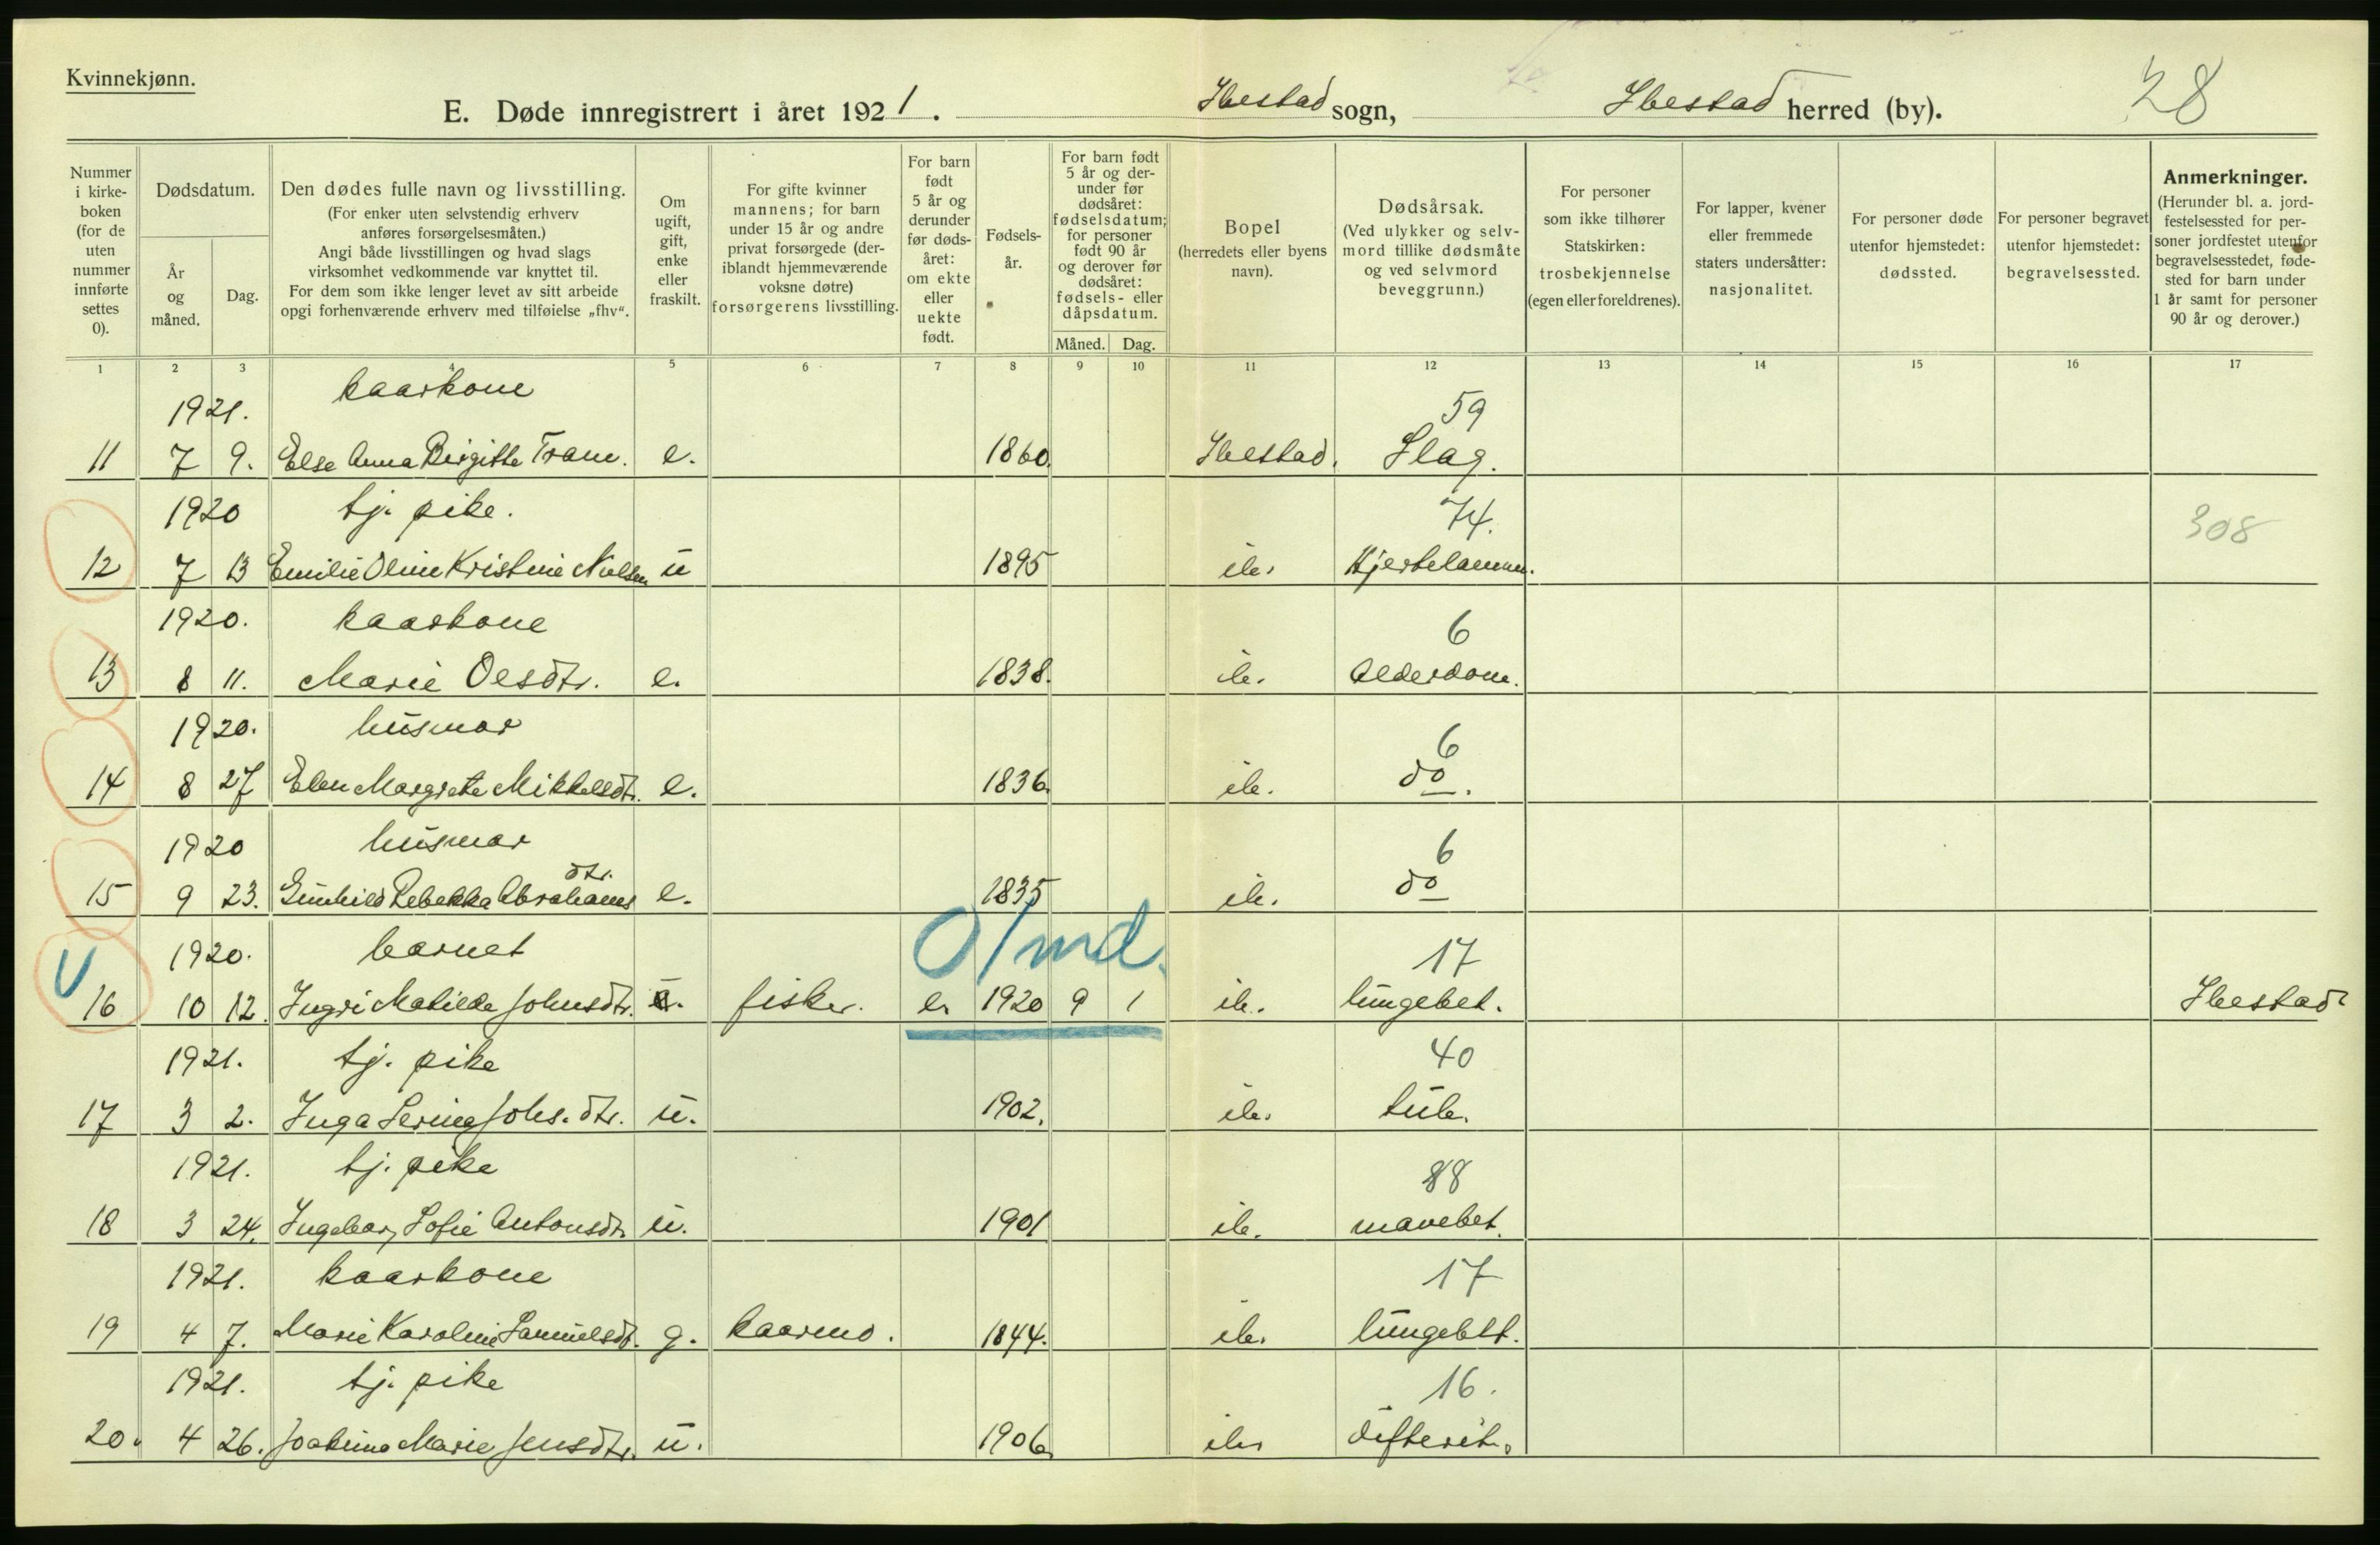 Kvinnekjønn.
E. Døde innregistrert i året 1921. Ibestad sogn, Ibestad herred (by). 28
Nummer i kirkeboken (for de uten nummer innførte settes 0).
Dødsdatum.
År og måned.
Dag.
Den dødes fulle navn og livsstilling.
(For enker uten selvstendig erhverv anføres forsørgelsesmåten.)
Angi både livsstillingen og hvad slags virksomhet vedkommende var knyttet til.
For dem som ikke lenger levet av sitt arbeide opgi forhenværende erhverv med tilføielse „fhv“.
Om ugift, gift, enke eller fraskilt.
For gifte kvinner mannens; for barn under 15 år og andre privat forsørgede (deriblandt hjemmeværende voksne døtre) forsørgerens livsstilling.
For barn født 5 år og derunder før dødsåret: om ekte eller uekte født.
Fødselsår.
For barn født 5 år og derunder før dødsåret: fødselsdatum; for personer født 90 år og derover før dødsåret: fødsels- eller dåpsdatum.
Måned. Dag.
Bopel (herredets eller byens navn).
Dødsårsak. (Ved ulykker og selvmord tillike dødsmåte og ved selvmord beveggrunn.)
For personer som ikke tilhører Statskirken: trosbekjennelse (egen eller foreldrenes).
For lapper, kvener eller fremmede staters undersåtter: nasjonalitet.
For personer døde utenfor hjemstedet: dødssted.
For personer begravet utenfor hjemstedet: begravelsessted.
Anmerkninger. (Herunder bl. a. jordfestelsessted for personer jordfestet utenfor begravelsesstedet, fødested for barn under 1 år samt for personer 90 år og derover.)
1 2 3 4 5 6 7 8 9 10 11 12 13 14 15 16 17
1921. kaarkone 59
11 7 9. Else Anna Birgitte Tran. e. 1860. Ibestad. Slag.
1920 tj. pike. 74. 308
12 7 13 Emilie Oline Kristine Nielsen u 1895 ib. Hjertelamm.
1920. kaarkone 6
13 8 11. Marie Olsdtr. e. 1838. ib. Alderdom.
1920. husmor 6
14 8 27 Elen Margrete Mikkelsdtr. e. 1836. ib. do.
1920 husmor 6
15 9 23. Gunhild Rebekka Abrahamsdtr. e. 1835 ib. do
1920. barnet 0/md. 17
16 10 12. Ingri Matilde Johnsdtr. u. fisker. e. 1920 9 1 ib. lungebet. Ibestad
1921. tj. pike 40
17 3 2. Inga Serine Johs.dtr. u. 1902. ib. tub.
1921. tj. pike 88
18 3 24. Ingebor Sofie Antonsdtr. u. 1901 ib. mavebet.
1921. kaarkone 17
19 4 7. Marie Karoline Samuelsdt. g. kaarmd. 1844. ib. lungebet.
1921. tj. pike 16.
20. 4 26. Joakima Marie Jensdtr. u. 1906. ib. difterit.